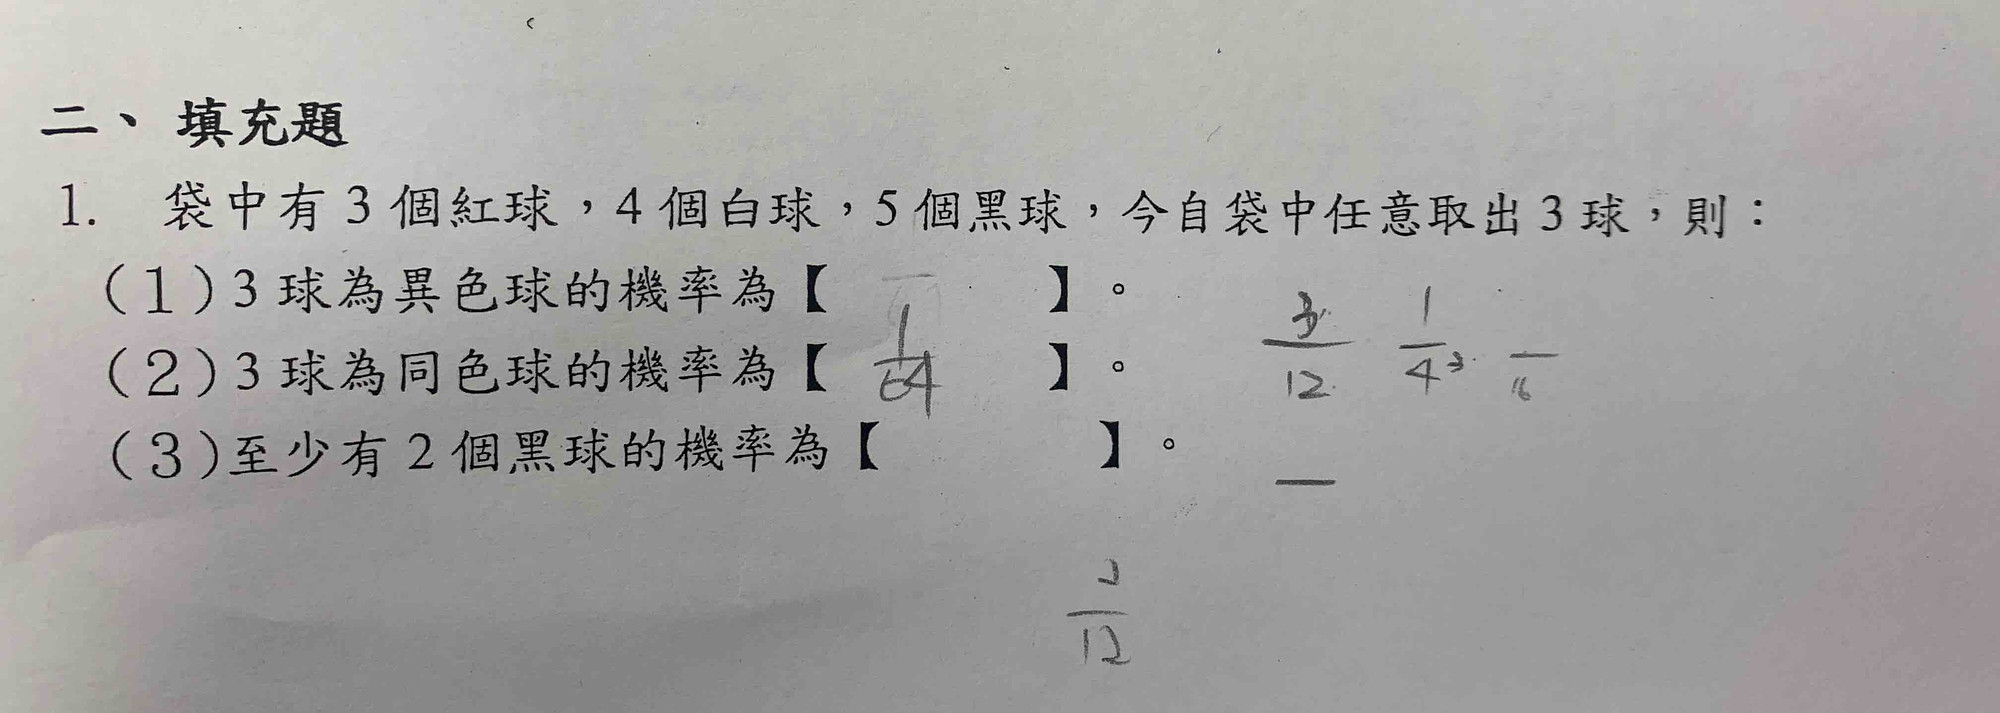 二、填充題
1. 袋中有3個紅球,4個白球,5個黑球,今自袋中任意取出3球,則:
(1)3球為異色球的機率為【 】。
(2)3球為同色球的機率為【 1/64 】。
3/12 1/4
(3)至少有2個黑球的機率為【 】。
/12